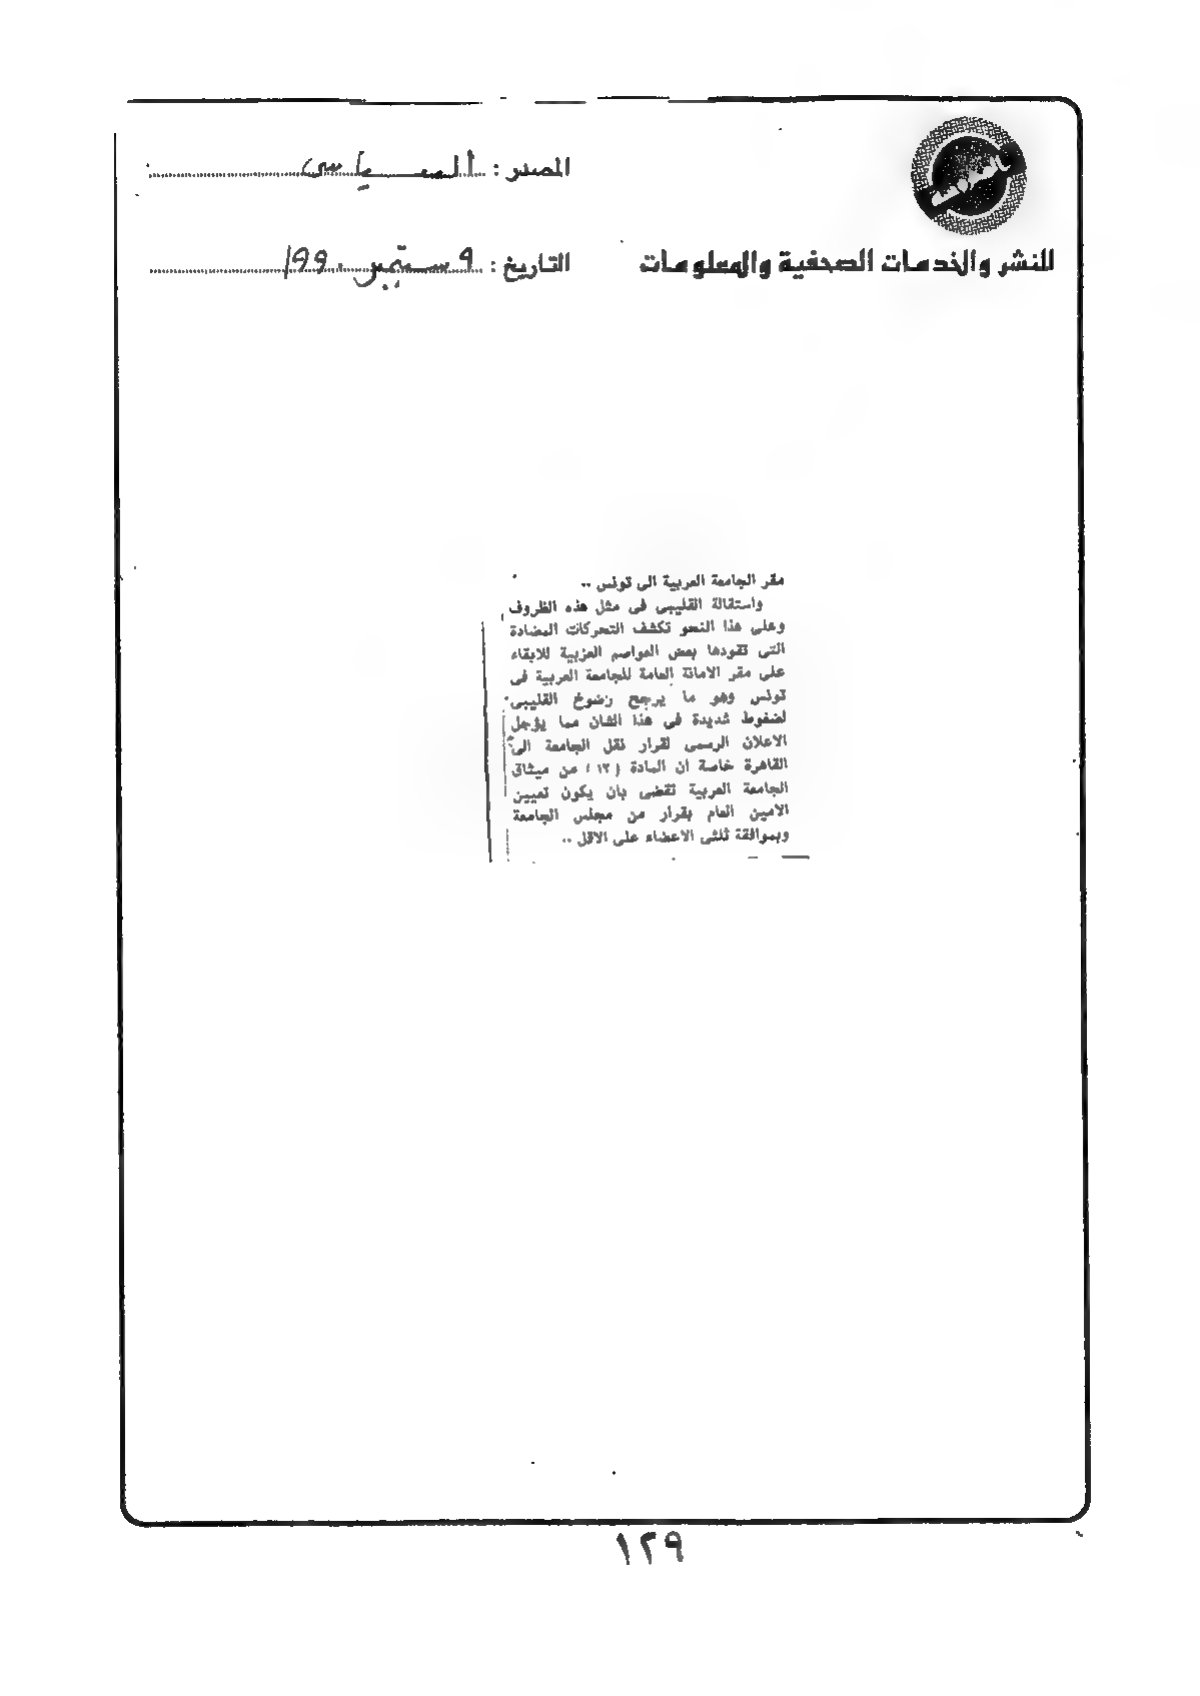 المصدر : السياسى
للنشر والخدمات الصحفية والمعلومات
التاريخ : ٩ سبتمبر ١٩٩٠
مقر الجامعة العربية الى تونس ..
واستقالة القليبى فى مثل هذه الظروف
وعلى هذا النحو تكشف التحركات المضادة
التى تقودها بعض العواصم العربية للابقاء
على مقر الامانة العامة للجامعة العربية فى
تونس وهو ما يرجح رضوخ القليبى
لضغوط شديدة فى هذا الشان مما يؤجل
الاعلان الرسمى لقرار نقل الجامعة الى
القاهرة خاصة ان المادة (١٢) من ميثاق
الجامعة العربية تقضى بان يكون تعيين
الامين العام بقرار من مجلس الجامعة
وبموافقة ثلثى الاعضاء على الاقل ..
١٢٩